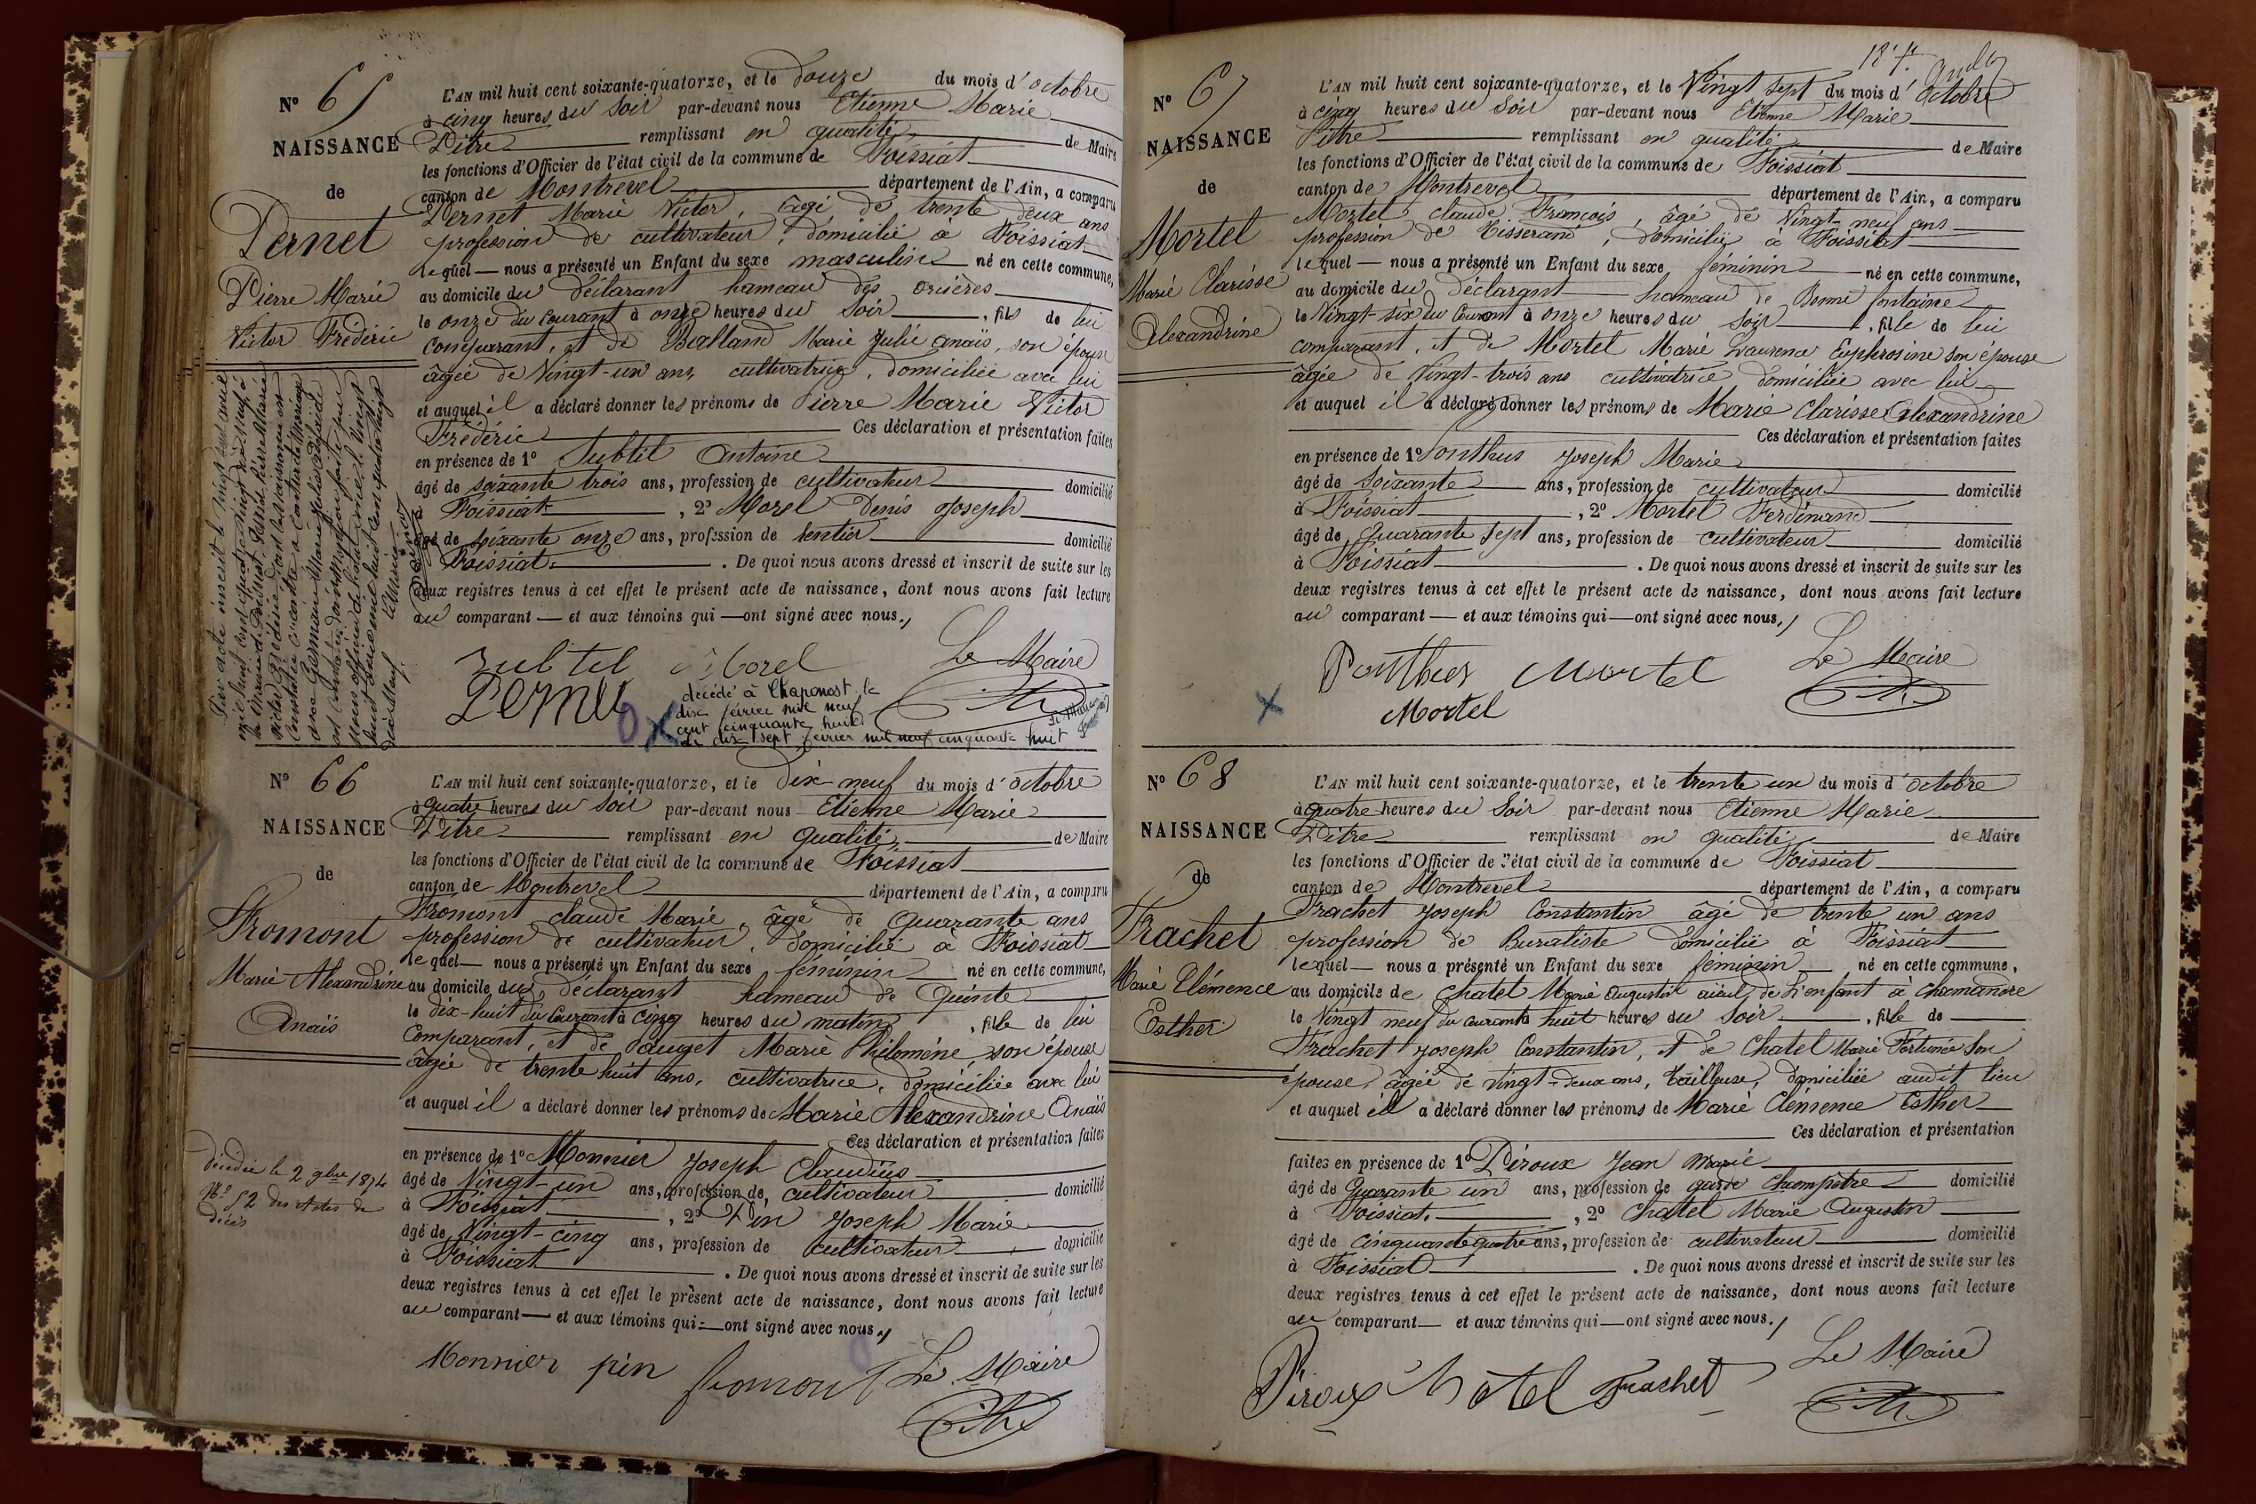 N° 65
NAISSANCE
de
Pernet
Pierre Marie
Victor Frédéric
L'AN mil huit cent soixante-quatorze, et le douze du mois d'octobre
à cinq heures du soir par-devant nous Etienne Marie
Pitre remplissant en qualité de Maire
les fonctions d'Officier de l'état civil de la commune de Foissiat
canton de Montrevel département de l'Ain, a comparu
Pernet Marie Victor, âgé de trente deux ans
profession de cultivateur, domicilié à Foissiat
lequel nous a présenté un Enfant du sexe masculin né en cette commune,
au domicile du déclarant hameau des
le onze du courant à onze heures du soir, fils de lui
comparant, et de Balland Marie Julie anaïs, son épouse
âgée de Vingt-un ans, cultivatrice, domiciliée avec lui
et auquel il a déclaré donner les prénoms de Pierre Marie Victor
Frédéric Ces déclaration et présentation faites
en présence de 1° Subtil Antoine
âgé de soixante trois ans, profession de cultivateur domicilié
à Foissiat, 2° Morel Denis Joseph
âgé de soixante onze ans, profession de rentier domicilié
à Foissiat. De quoi nous avons dressé et inscrit de suite sur les
deux registres tenus à cet effet le présent acte de naissance, dont nous avons fait lecture
au comparant et aux témoins qui ont signé avec nous.
Subtil Morel Le Maire
Pernet
décédé à Chaponost le
dix février mil neuf
cent cinquante huit
Le dix sept février mil neuf cinquante huit
N° 66
NAISSANCE
de
Fromont
Marie Alexandrine
Anaïs
décédée le 2 9bre 1874
N° 52 des Actes de
décès
L'AN mil huit cent soixante-quatorze, et le dix-neuf du mois d'octobre
à quatre heures du soir par-devant nous Etienne Marie
Pitre remplissant en qualité de Maire
les fonctions d'Officier de l'état civil de la commune de Foissiat
canton de Montrevel département de l'Ain, a comparu
Fromont claude Marie, âgé de quarante ans
profession de cultivateur, domicilié à Foissiat
lequel nous a présenté un Enfant du sexe féminin né en cette commune,
au domicile du déclarant hameau de Quinte
le dix-huit du courant à cinq heures du matin, fille de lui
comparant, et de auget Marie Philomène, son épouse
âgée de trente huit ans, cultivatrice, domiciliée avec lui
et auquel il a déclaré donner les prénoms de Marie Alexandrine Anaïs
Ces déclaration et présentation faites
en présence de 1° Monnier Joseph Claudius
âgé de Vingt-un ans, profession de cultivateur domicilié
à Foissiat, 2° Pin Joseph Marie
âgé de Vingt-cinq ans, profession de cultivateur domicilié
à Foissiat. De quoi nous avons dressé et inscrit de suite sur les
deux registres tenus à cet effet le présent acte de naissance, dont nous avons fait lecture
au comparant et aux témoins qui ont signé avec nous.
Monnier pin fromont Le Maire
N° 67
NAISSANCE
de
Mortel
Marie Clarisse
Alexandrine
L'AN mil huit cent soixante-quatorze, et le Vingt sept du mois d'octobre
à cinq heures du soir par-devant nous Etienne Marie
Pitre remplissant en qualité de Maire
les fonctions d'Officier de l'état civil de la commune de Foissiat
canton de Montrevel département de l'Ain, a comparu
Mortel claude François, âgé de Vingt-neuf ans
profession de tisserand, domicilié à Foissiat
lequel nous a présenté un Enfant du sexe féminin né en cette commune,
au domicile du déclarant hameau de Bonne fontaine
le Vingt-six du Courant à onze heures du soir, fille de lui
comparant, et de Mortel Marie Laurence Euphrosine son épouse
âgée de Vingt-trois ans cultivatrice, domiciliée avec lui
et auquel il a déclaré donner les prénoms de Marie Clarisse Alexandrine
Ces déclaration et présentation faites
en présence de 1° Ponthus Joseph Marie
âgé de soixante ans, profession de cultivateur domicilié
à Foissiat, 2° Mortel Ferdinand
âgé de Quarante sept ans, profession de cultivateur domicilié
à Foissiat. De quoi nous avons dressé et inscrit de suite sur les
deux registres tenus à cet effet le présent acte de naissance, dont nous avons fait lecture
au comparant et aux témoins qui ont signé avec nous.
Ponthus Mortel Le Maire
Mortel
N° 68
NAISSANCE
de
Frachet
Marie Clémence
Esther
L'AN mil huit cent soixante-quatorze, et le trente un du mois d'octobre
à quatre heures du soir par-devant nous Etienne Marie
Pitre remplissant en qualité de Maire
les fonctions d'Officier de l'état civil de la commune de Foissiat
canton de Montrevel département de l'Ain, a comparu
Frachet Joseph Constantin âgé de trente un ans
profession de Buraliste domicilié à Foissiat
lequel nous a présenté un Enfant du sexe féminin né en cette commune,
au domicile de Chatel Marie Augustin aïeul de l'enfant à chamandre
le Vingt neuf du courant à huit heures du soir, fille de
Frachet Joseph Constantin, et de Chatel Marie Fortunée Son
épouse, âgée de vingt-deux ans, tailleuse, domiciliée audit lieu
et auquel il a déclaré donner les prénoms de Marie Clémence Esther
Ces déclaration et présentation
faites en présence de 1° Piroux Jean Marie
âgé de Quarante un ans, profession de garde Champêtre domicilié
à Foissiat, 2° Chatel Marie Augustin
âgé de cinquante quatre ans, profession de cultivateur domicilié
à Foissiat. De quoi nous avons dressé et inscrit de suite sur les
deux registres tenus à cet effet le présent acte de naissance, dont nous avons fait lecture
au comparant et aux témoins qui ont signé avec nous.
Piroux Chatel Frachet Le Maire